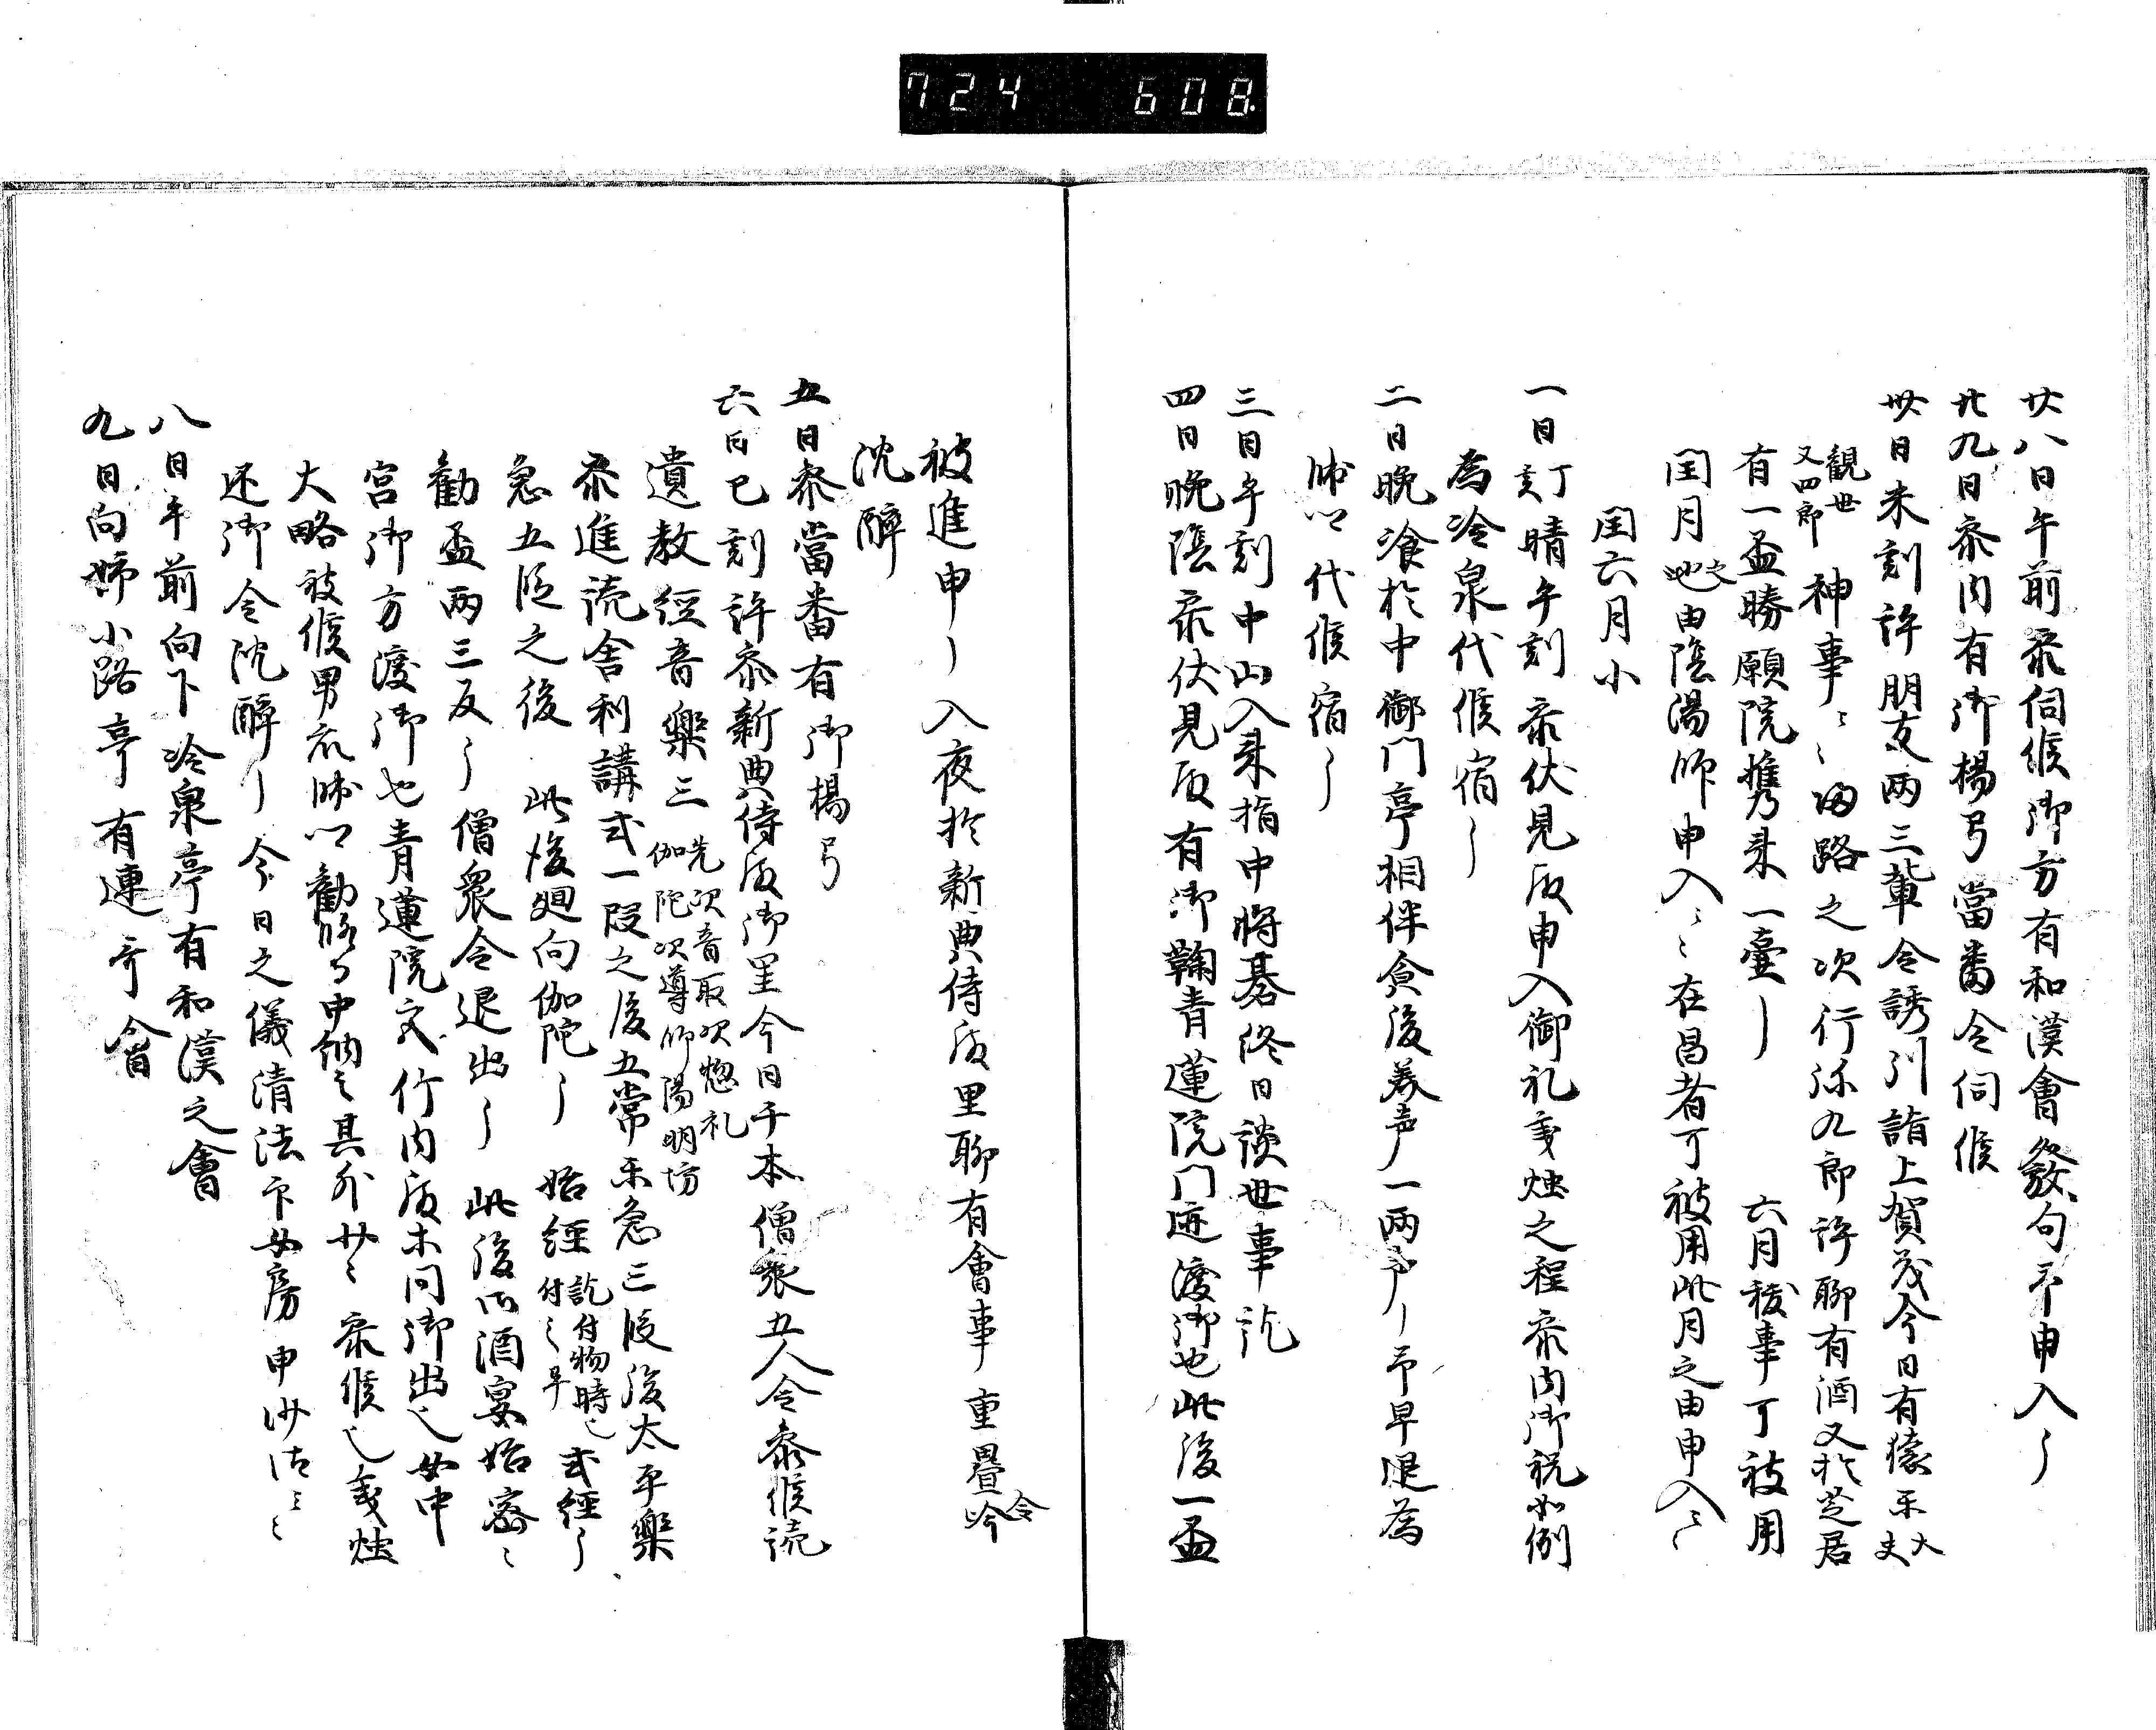 724 608
廿八日午前参伺候御方有和漢會發句予申入了
廿九日参内有御楊弓當番令伺候
卅日未刻許朋友両三輩令誘引詣上賀茂今日有猿楽大夫
観世
又四郎神事〻〻帰路之次行弥九郎許聊有酒又於芝居
有一盃勝願院携来一臺了 六月祓事可被用
閏月哉之由陰陽師申入〻〻在昌者可被用此月之由申入〻〻
閏六月小
一日丁亥晴午刻参伏見殿申入御礼秉燭之程参内御祝如例
為冷泉代候宿了
二日晩飡於中御門亭相伴食後美声一両声了予早退為
代候宿了
三日午刻中山入来指中将碁終日談世事訖
四日晩陰参伏見殿有御鞠青蓮院門跡渡御也此後一盃
被進申了入夜於新典侍殿里聊有會事重畳令吟
沈醉
五日参當番有御楊弓
六日巳刻許参新典侍殿御里今日千本僧衆五人令参候読
遺教経音樂三
先次音取次惣礼
伽陀次導師陽明坊
参進読舎利講式一段之後五常楽急三段後太平樂
急五段之後 此後廻向伽陀了 始経
訖付物時也
付之早
式経了
勧盃両三反了僧衆令退出了 此後御酒宴始
宮御方渡御也青蓮院文竹内殿木同御出也女中
大略被候男衆 中納言其外廿〻参候也秉燭
還御令沈醉了今日之儀清法印女房申沙汰〻〻
八日午前向下冷泉亭有和漢之會
九日向姉小路亭有連哥會